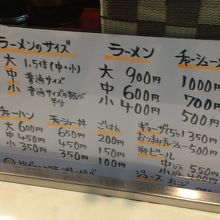 ラーメンのサイズ
大 1.5倍(中+小)
中 普通サイズ
小 普通サイズの
半分
ラーメン
大 900円
中 600円
小 400円
チャーシューメン
1000円
700円
500円
チャーハン
大 600円
中 450円
小 350円
チャーシュー丼
650円
450円
350円
ごはん
200円
150円
100円
ギョーザ(5ケ) 350円
350円
ビール
中びん 550
小びん
ジュース